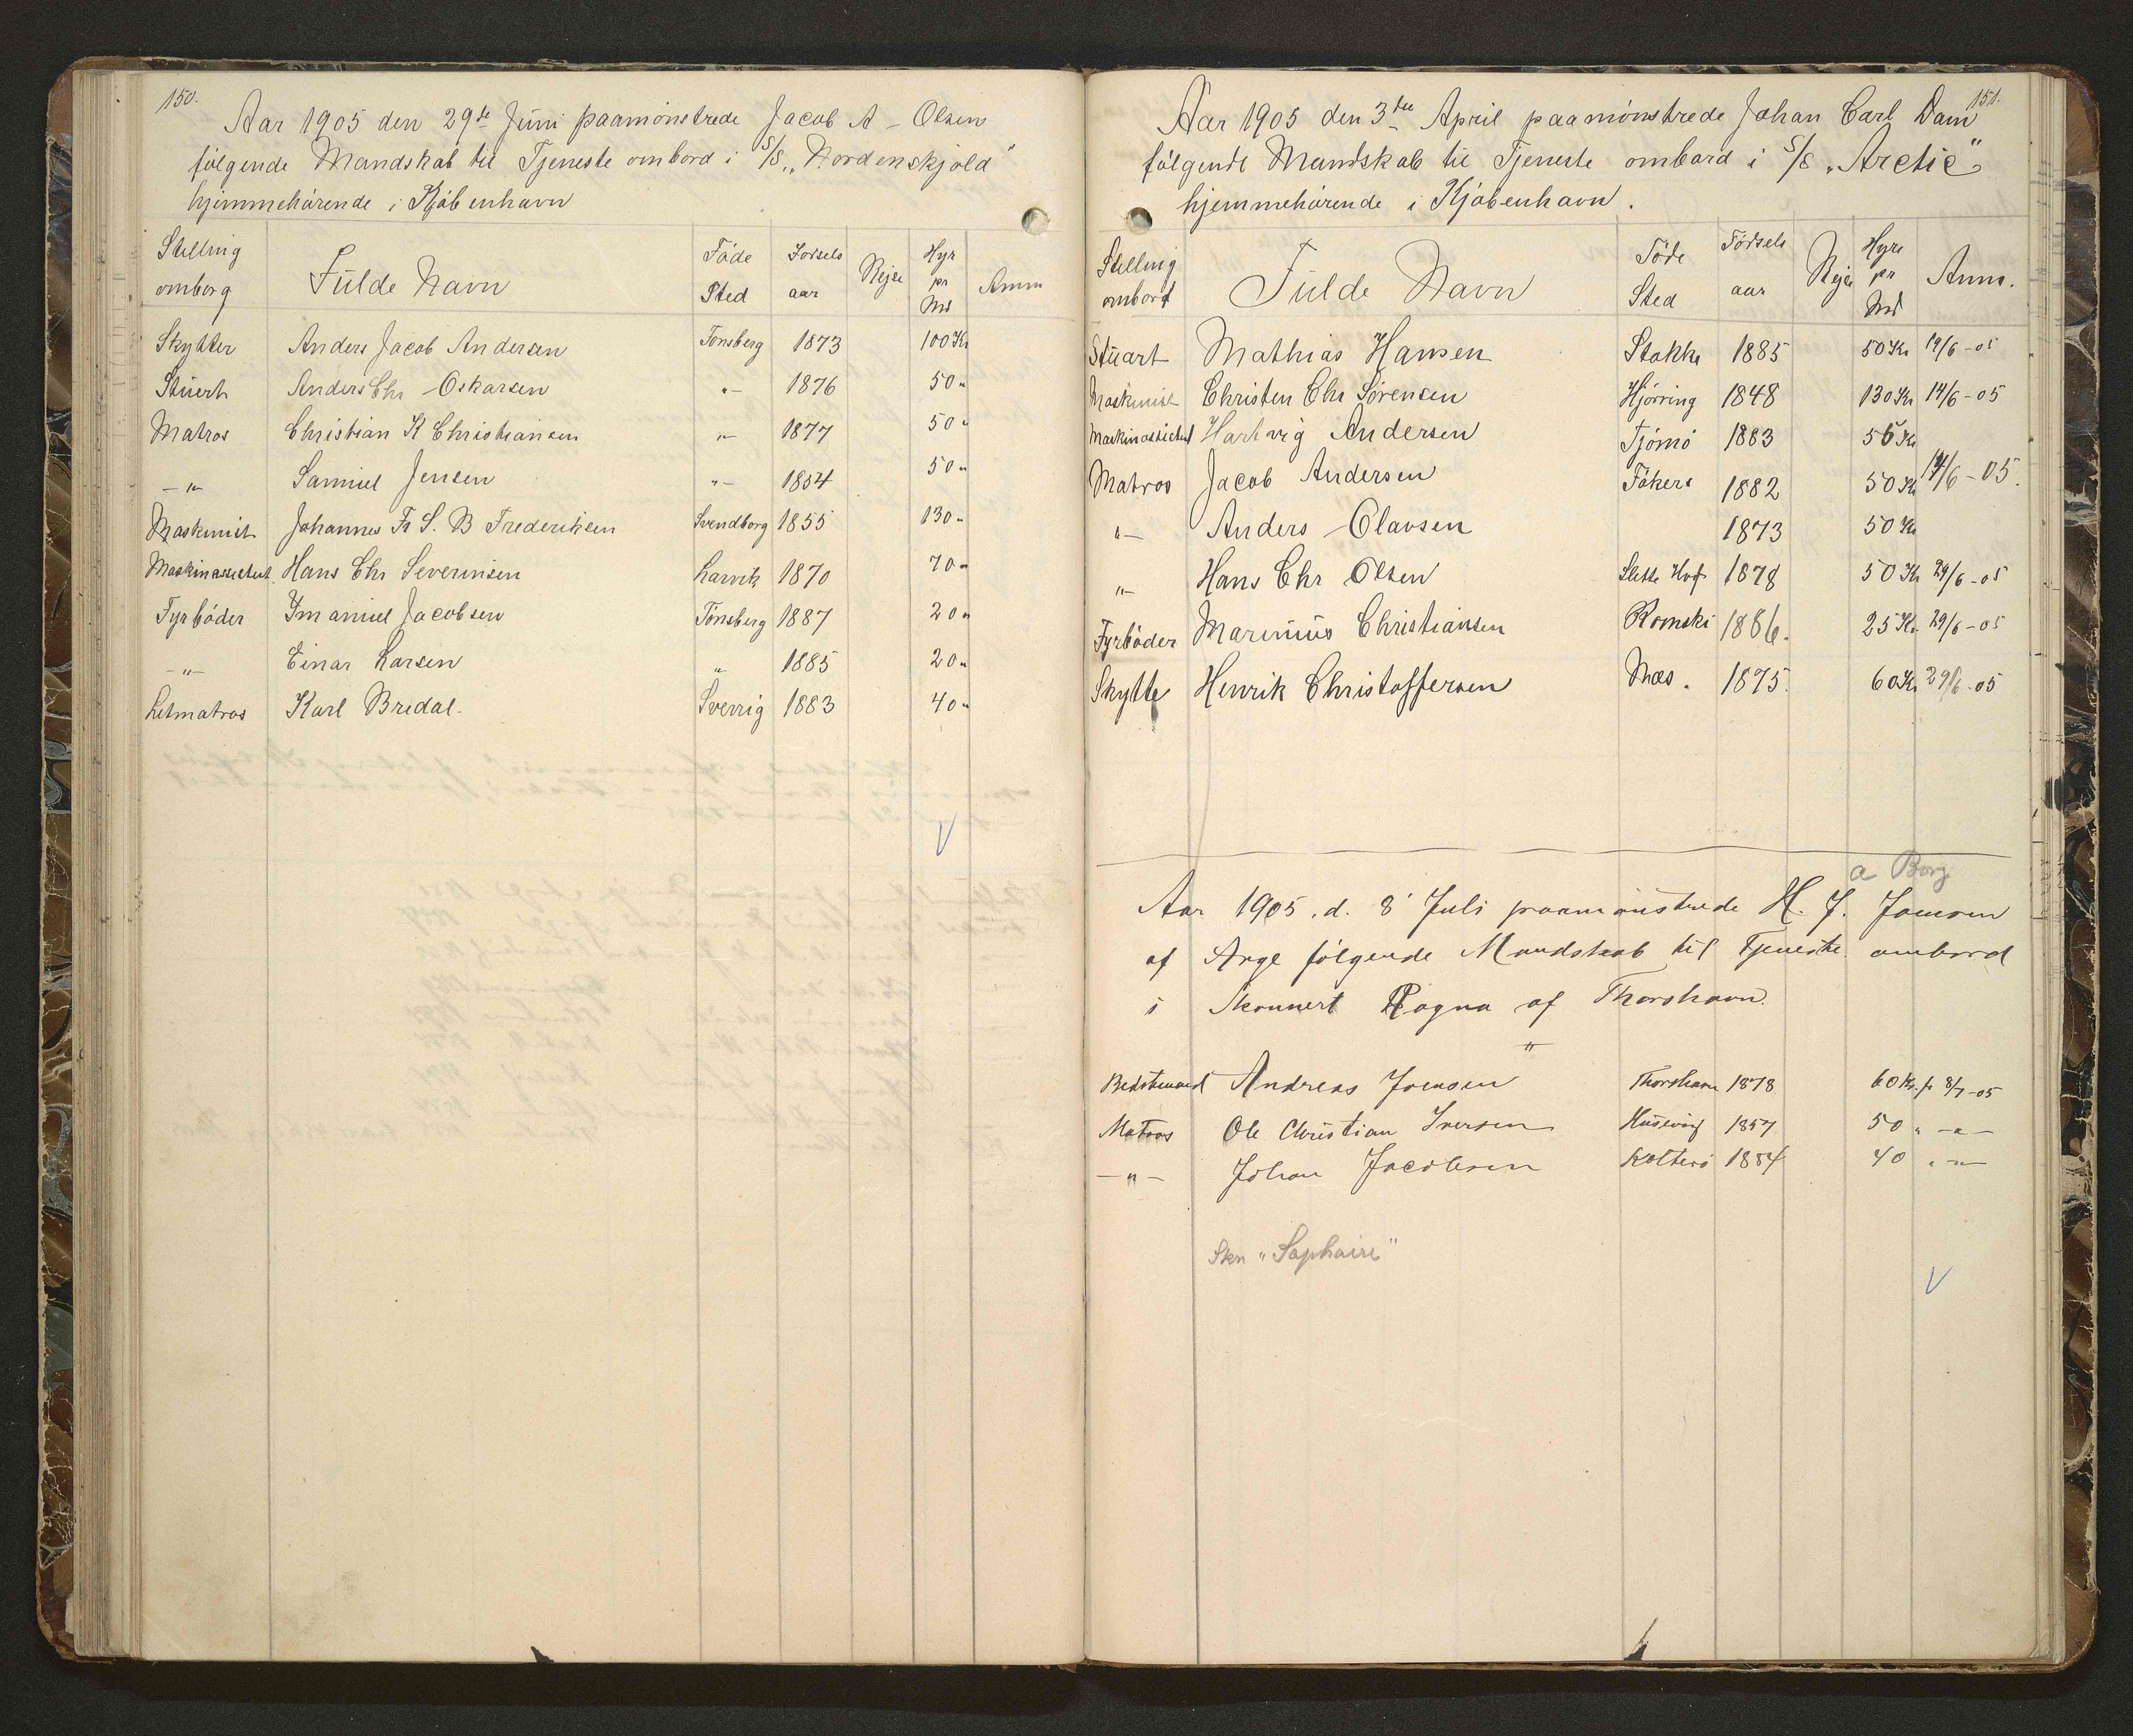 150.
Aar 1905 den 29de Juni paamönstrede Jacob A - Olsen
følgende Mandskab til Tjeneste ombord i S/S „Nordenskjöld"
hjemmehörende i Kjöbenhavn
Stelling omborg Fulde Navn Föde Sted Fødsels aar Rejse Hyr pr Md Anm
Skytter Anders Jacob Andersen Tønsberg 1873 100 Kr
Stuert Anders Chr Oskarsen "- 1876 50 "
Matros Christian K Christiansen "- 1877 50 "
-"- Samuel Jensen "- 1854 50 "
Maskinist Johannes Fr S. B Frederiksen Svendborg 1855 130 "
Maskinassistent Hans Chr Severinsen Larvik 1870 70 "
Fyrböder Imanuel Jacobsen Tönsberg 1887 20 "
-"- Einar Larsen " 1885 20 "
Letmatros Karl Bredal. Sverrig 1883 40 "
V
151.
Aar 1905 den 3die April paamönstrede Johan Carl Dam
fölgende Mandskab til Tjeneste ombord i S/S „Arctic"
hjemmehörende i Kjöbenhavn.
Stelling ombord Fulde Navn Föde Sted Födsels aar Rejse Hyre pr Md Anm.
Stuart Mathias Hansen Stokke 1885 50 Kr 14/6-05
Maskinist Christen Chr Sörensen Hjörring 1848 130 Kr 14/6-05
Maskinassistent Hartvig Andersen Tjömö 1883 56 Kr
Matros Jacob Andersen 1882 50 Kr 14/6-05.
"- Anders Olavsen 1873 50 Kr
"- Hans Chr Olsen 1878 50 Kr 29/6-05
Fyrböder Marinius Christiansen 1886. 25 Kr. 29/6-05
Skytte Henrik Christoffersen Næs. 1875. 60 Kr 29/6-05
a Borg
Aar 1905. d. 8' Juli paamönstrede H. J. Joensen
af Arge følgende Mandskab til Tjeneste ombord
i Skonnert Ragna af Thorshavn.
"
Bedstemand Andreas Joensen Thorshavn 1878 60 Kr. fr 8/7-05
Matros Ole Christian Iversen Husevig 1857 50 " -"-
-"- Johan Jacobsen Kolterö 1884 40 " -"-
Skn "Saphaire"
V